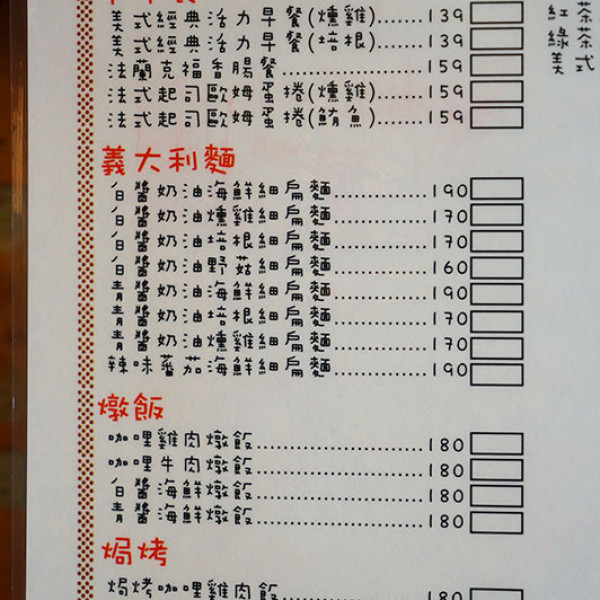 美式經典活力早餐(燻雞)......139
美式經典活力早餐(培根)......139
法蘭克福香腸餐..................159
法式起司歐姆蛋捲(燻雞)......159
法式起司歐姆蛋捲(鮪魚)......159
義大利麵
白醬奶油海鮮細扁麵............190
白醬奶油燻雞細扁麵............170
白醬奶油培根細扁麵............170
白醬奶油野菇細扁麵............160
青醬奶油海鮮細扁麵............190
青醬奶油培根細扁麵............170
青醬奶油燻雞細扁麵............170
辣味蕃茄海鮮細扁麵............190
燉飯
咖哩雞肉燉飯.....................180
咖哩牛肉燉飯.....................180
白醬海鮮燉飯.....................180
青醬海鮮燉飯.....................180
焗烤
焗烤咖哩雞肉飯..................180
紅茶
綠茶
美式